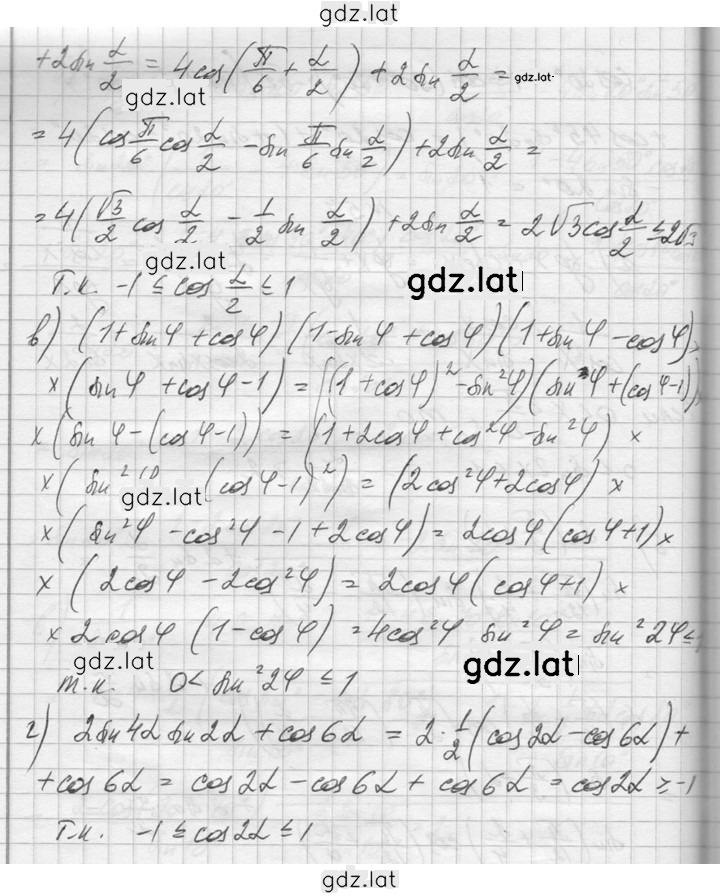 gdz.lat
+2sin α/2 = 4cos(π/6 + α/2) + 2sin α/2 =
gdz.lat
gdz.lat
= 4(cos π/6 cos α/2 - sin π/6 sin α/2) + 2sin α/2 =
= 4(√3/2 cos α/2 - 1/2 sin α/2) + 2sin α/2 = 2√3cos α/2 ≤ 2√3
gdz.lat
gdz.lat
Т.к. -1 ≤ cos α/2 ≤ 1
в) (1+sinφ+cosφ)(1-sinφ+cosφ)(1+sinφ-cosφ)×
×(sinφ+cosφ-1) = ((1+cosφ)²-sin²φ)(sinφ+(cosφ-1))×
×(sinφ-(cosφ-1)) = (1+2cosφ+cos²φ-sin²φ)×
×(sin²φ (cosφ-1)²) = (2cos²φ+2cosφ)×
gdz.lat
×(sin²φ-cos²φ-1+2cosφ) = 2cosφ(cosφ+1)×
×(2cosφ-2cos²φ) = 2cosφ(cosφ+1)×
×2cosφ(1-cosφ) = 4cos²φ sin²φ = sin²2φ ≤ 1
gdz.lat
gdz.lat
т.к. 0< sin²2φ ≤ 1
г) 2sin4α sin2α + cos6α = 2·1/2(cos2α-cos6α)+
+cos6α = cos2α-cos6α+cos6α = cos2α ≥ -1
Т.к. -1 ≤ cos2α ≤ 1
gdz.lat